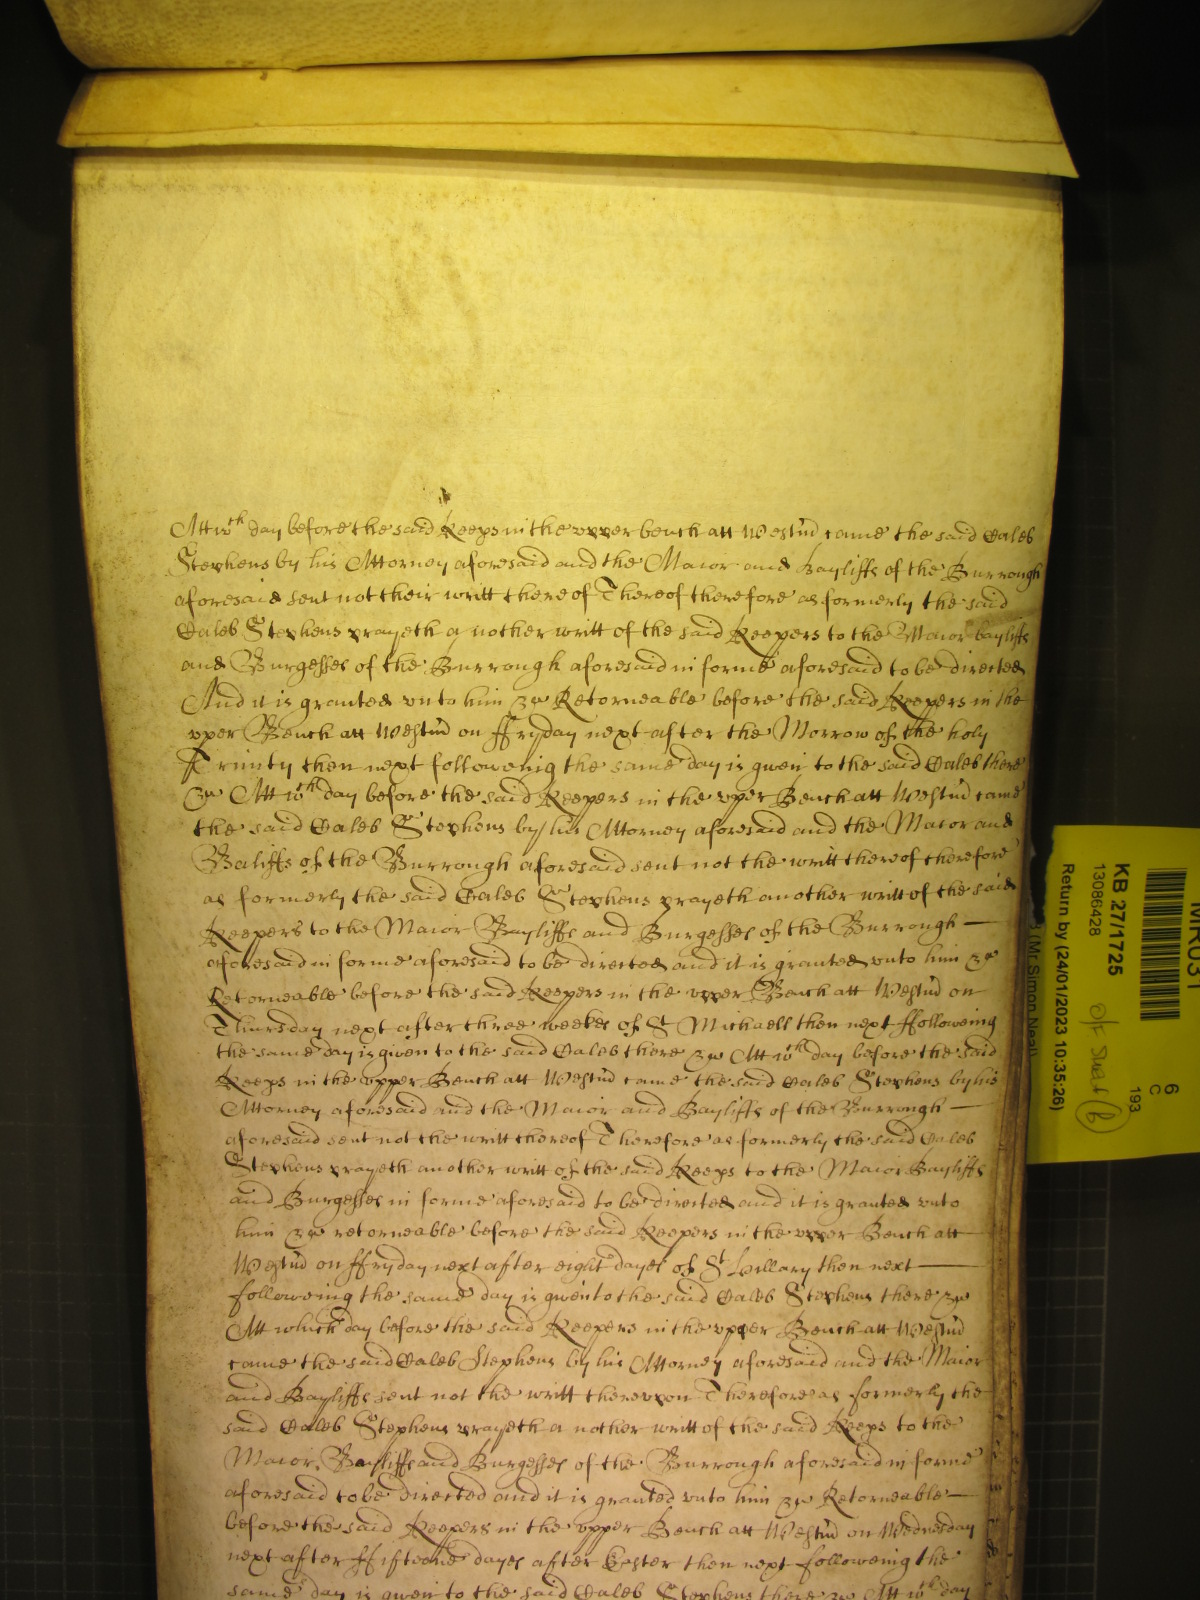 Att wth day before the said Keeps in the upper bench att Westm̃ came the said Caleb
Stephens by his Attorney aforesaid and the Maior and Bayliffs of the Burrough
aforesaid sent not their writt thereof Thereof therefore as formerly the said
Caleb Stephens prayeth a nother writt of the said Keepers to the Maior bayliffs
and Burgesses of the Burrough aforesaid in forme aforesaid to be directed
And it is granted vnto him &c Retorneable before the said Keepers in the
vpper Bench att Westm̃ on ffryday next after the Morrow of the holy
Trinity then next followeing the same day is given to the said Caleb there
&c Att wth day before the said Keepers in the vpper Bench att Westm̃ came
the said Caleb Stephens by his Attorney aforesaid and the Maior and
Baliffs of the Burrough aforesaid sent not the writt thereof therefore
as formerly the said Caleb Stephens prayeth another writt of the said
Keepers to the Maior Bayliffs and Burgesses of the Burrough
aforesaid in forme aforesaid to be directed and it is granted vnto him &c
Retorneable before the said Keepers in the vpper Bench att Westm̃ on
Thursday next after three weekes of St Michaell then next ffolloweing
the same day is given to the said Caleb there &c Att wth day before the said
Keeps in the vpper Bench att Westm̃ came the said Caleb Stephens by his
Attorney aforesaid and the Maior and Bayliffs of the Burrough
aforesaid sent not the writt thereof Therefore as formerly the said Caleb
Stephens prayeth another writt of the said Keeps to the Maior Bayliffs
and Burgesses in forme aforesaid to be directed and it is granted vnto
him &c retorneable before the said Keepers in the vpper Bench att
Westm̃ on ffryday next after eight dayes of St Hillary then next
followeing the same day is given to the said Caleb Stephens there &c
Att which day before the said Keepers in the vpper Bench att Westm̃
came the said Caleb Stephens by his Attorney aforesaid and the Maior
and Bayliffs sent not the writt therevpon Therefore as formerly the
said Caleb Stephens prayeth a nother writt of the said Keeps to the
Maior Bayliffs and Burgesses of the Burrough aforesaid in forme
aforesaid to be directed and it is granted vnto him &c Retorneable
before the said Keepers in the vpper Bench att Westm̃ on Wednesday
next after ffifteene dayes after Easter then next followeing the
same day is given to the said Caleb Stephens there &c Att wth day
MR031
KB 27/1725
13086428
Return by (24/01/2023 10:35:26)
(Mr Simon Neal)
6
C
193